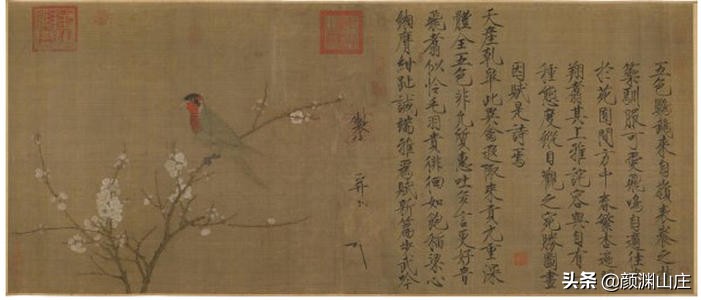 五色鸚鵡來自嶺表養之
禁籞馴服可愛飛鳴自適往來
於苑囿間方中春繁杏遍開
翔翥其上雅詫容與自有一
種態度縱目觀之宛勝圖畫
因賦是詩焉
天產乾皋此異禽遐陬來貢九重深
體全五色非凡質惠吐多言更好音
飛翥似憐毛羽貴徘徊如飽稻粱心
緗膺紺趾誠端雅為賦新篇步武吟
头条 @颜渊山庄